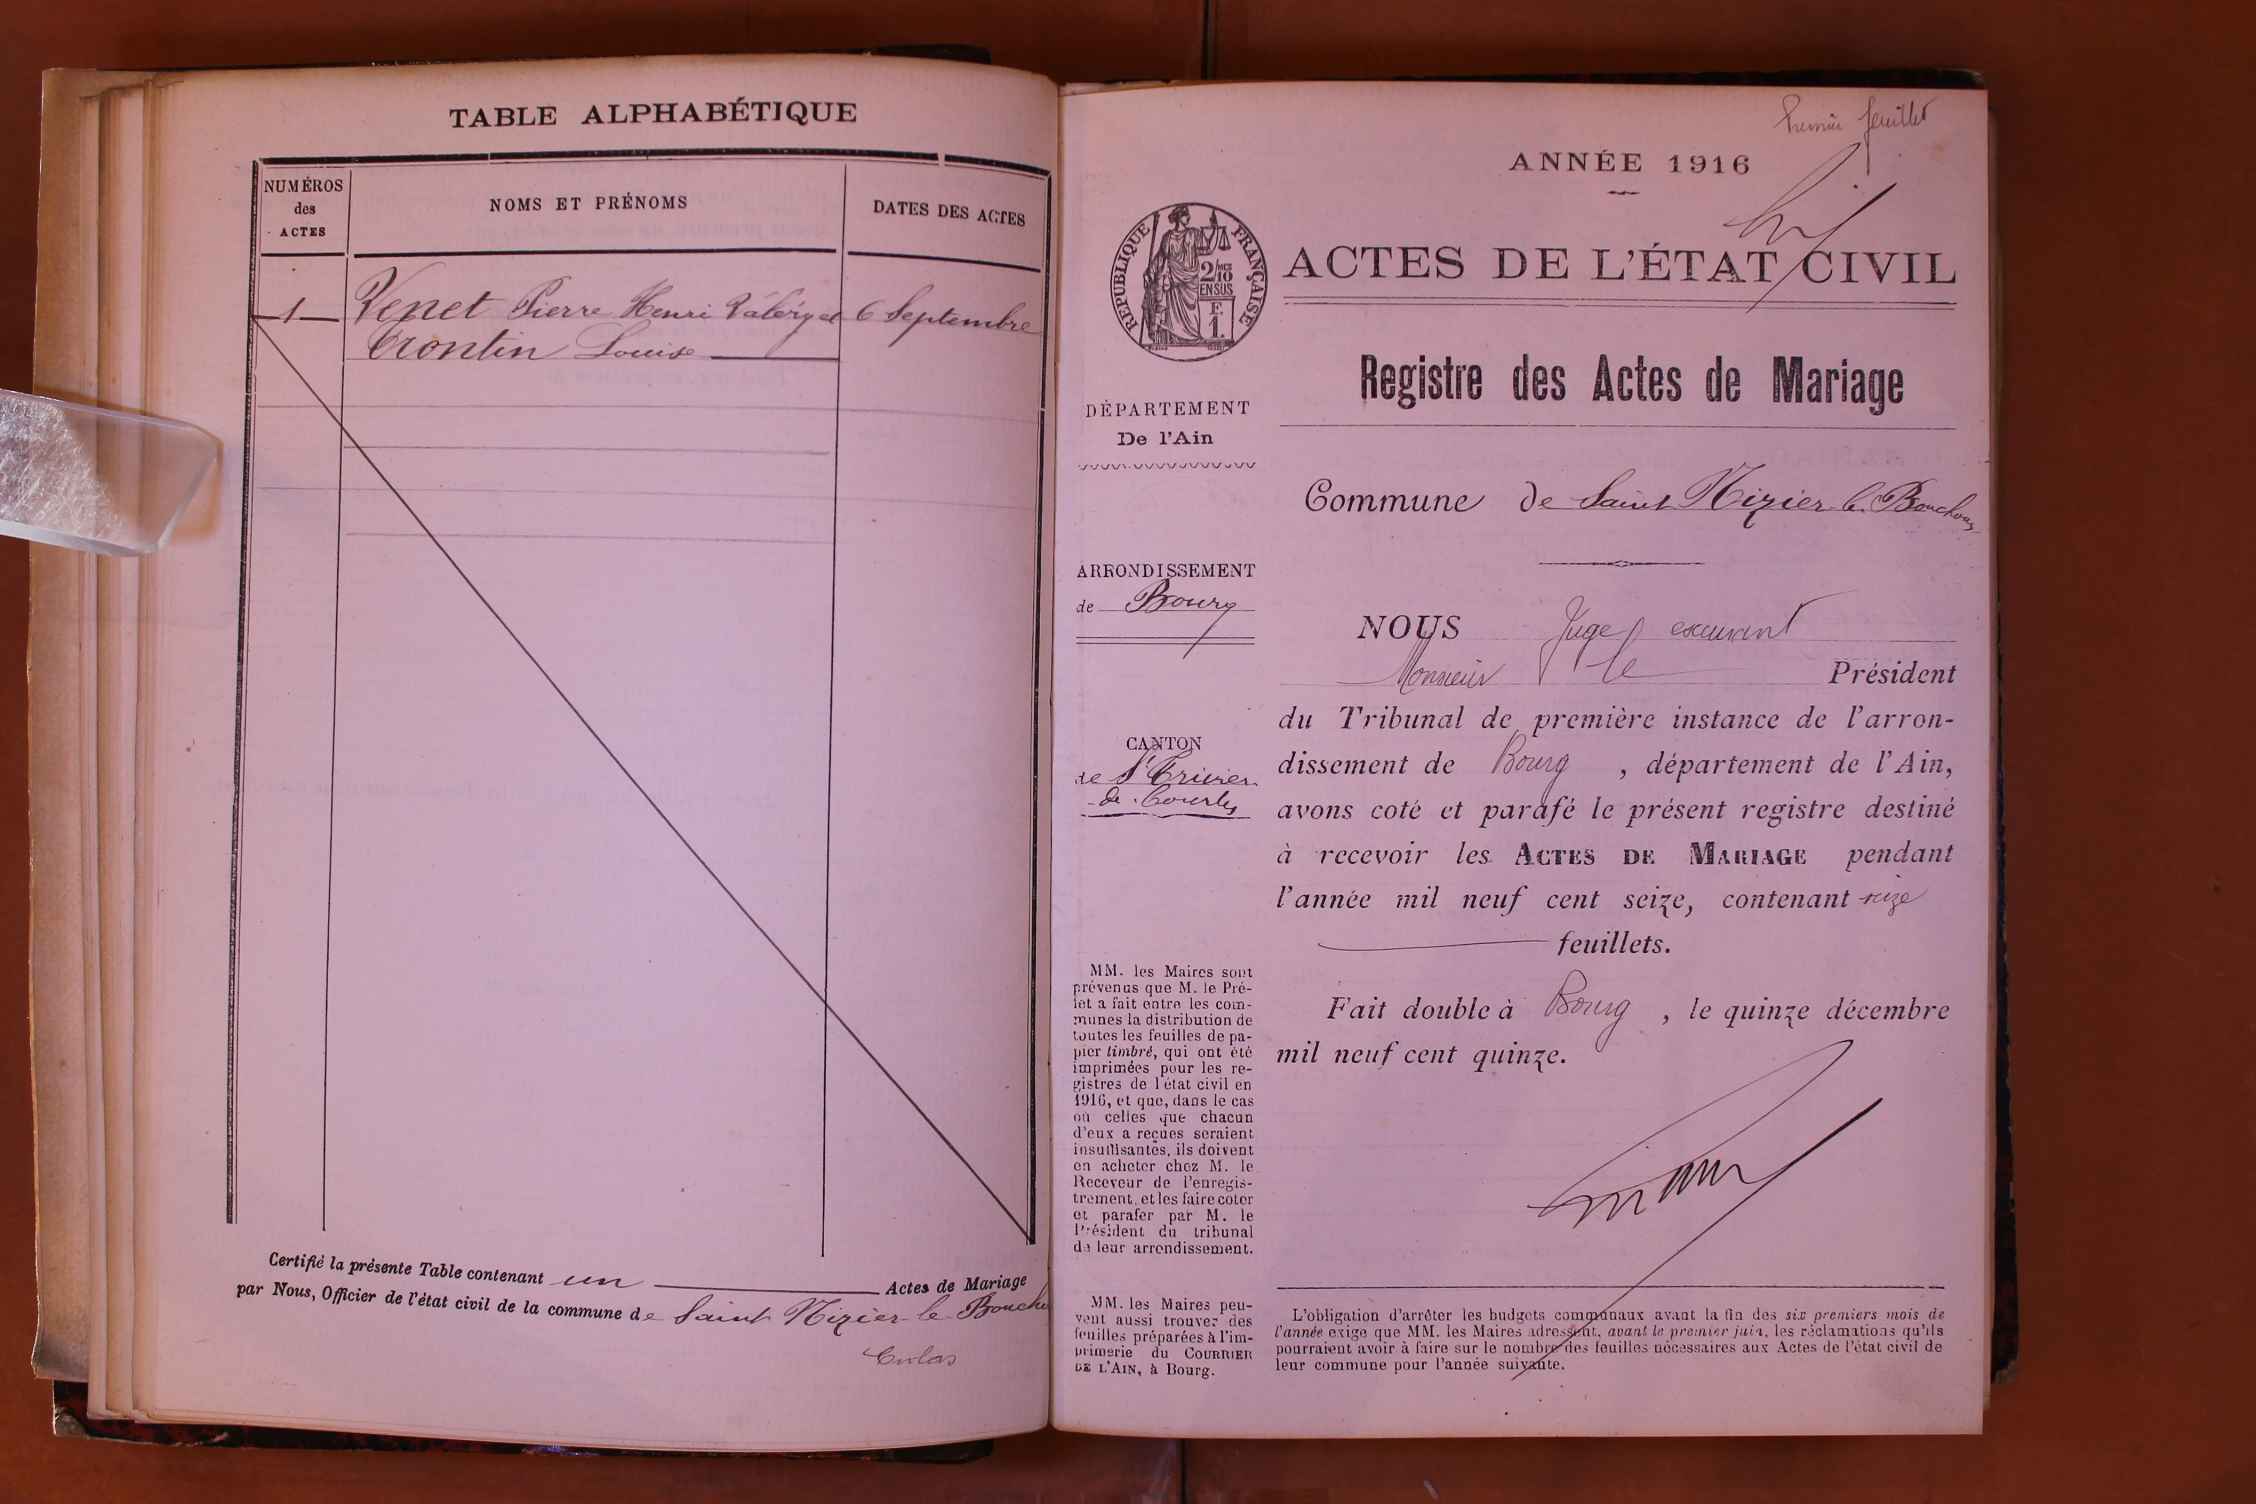 TABLE ALPHABÉTIQUE
NUMÉROS
des
ACTES
NOMS ET PRÉNOMS
DATES DES ACTES
1
Venet Pierre Henri Valéry et
6 Septembre
Trontin Louise
Certifié la présente Table contenant un Actes de Mariage
par Nous, Officier de l'état civil de la commune de Saint Nizier le Bouchou
Premier feuillet
ANNÉE 1916
RÉPUBLIQUE FRANÇAISE
2/10
EN SUS
F.
1.
ACTES DE L'ÉTAT CIVIL
Registre des Actes de Mariage
DÉPARTEMENT
De l'Ain
Commune de Saint Nizier le Bouchoux
ARRONDISSEMENT
de Bourg
CANTON
de St Trivier
de Courtes
NOUS Juge excusant
Monsieur le Président
du Tribunal de première instance de l'arron-
dissement de Bourg, département de l'Ain,
avons coté et parafé le présent registre destiné
à recevoir les ACTES DE MARIAGE pendant
l'année mil neuf cent seize, contenant seize
feuillets.
Fait double à Bourg, le quinze décembre
mil neuf cent quinze.
MM. les Maires sont
prévenus que M. le Pré-
fet a fait entre les com-
munes la distribution de
toutes les feuilles de pa-
pier timbré, qui ont été
imprimées pour les re-
gistres de l'état civil en
1916, et que, dans le cas
où celles que chacun
d'eux a reçues seraient
insuffisantes, ils doivent
en acheter chez M. le
Receveur de l'enregis-
trement, et les faire coter
et parafer par M. le
Président du tribunal
de leur arrondissement.
MM. les Maires peu-
vent aussi trouver des
feuilles préparées à l'im-
primerie du COURRIER
DE L'AIN, à Bourg.
L'obligation d'arrêter les budgets communaux avant la fin des six premiers mois de
l'année exige que MM. les Maires adressent, avant le premier juin, les réclamations qu'ils
pourraient avoir à faire sur le nombre des feuilles nécessaires aux Actes de l'état civil de
leur commune pour l'année suivante.